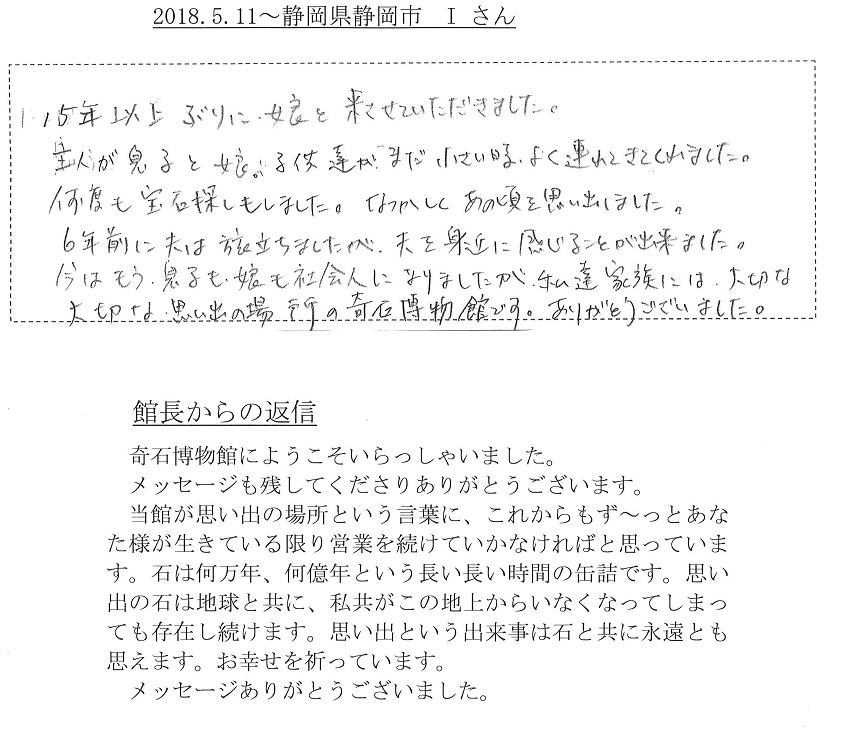 2018.5.11～静岡県静岡市　I さん
15年以上 ぶりに、娘と 来させていただきました。
主人が 息子と 娘、子供達が まだ 小さい時、よく連れてきてくれました。
何度も 宝石探しもしました。なつかしく あの頃を思い出しました。
6年前に夫は 旅立ちましたが、夫を 身近に 感じることが出来ました。
今はもう、息子も、娘も社会人に なりましたが、私達 家族には、大切な
大切な 思い出の場所の奇石博物館です。ありがとうございました。
館長からの返信
奇石博物館にようこそいらっしゃいました。
メッセージも残してくださりありがとうございます。
当館が思い出の場所という言葉に、これからもず～っとあな
た様が生きている限り営業を続けていかなければと思っていま
す。石は何万年、何億年という長い長い時間の缶詰です。思い
出の石は地球と共に、私共がこの地上からいなくなってしまっ
ても存在し続けます。思い出という出来事は石と共に永遠とも
思えます。お幸せを祈っています。
メッセージありがとうございました。